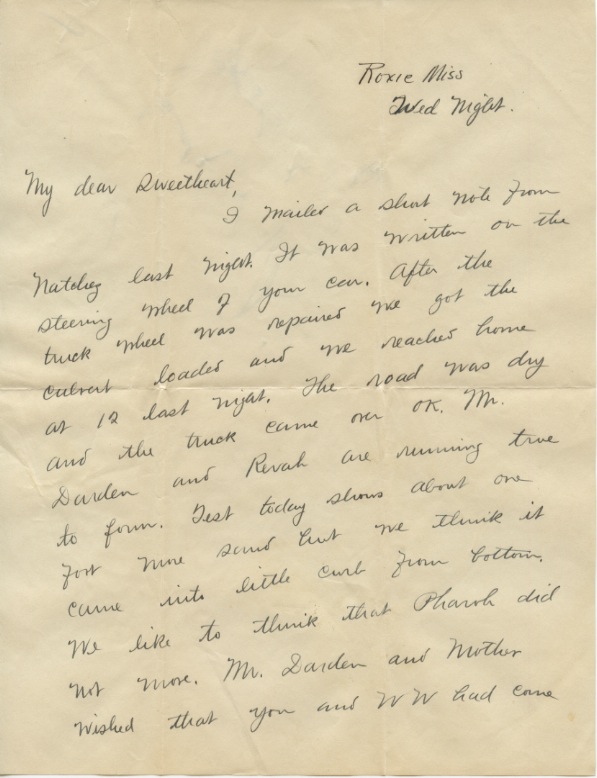 Roxie Miss
Wed Night.
My dear Sweetheart,
I mailed a short note from
Natchez last night. It was written on the
steering wheel of your car. After the
truck wheel was repaired we got the
culvert loaded and we reached home
at 12 last night. The road was dry
and the truck came over OK. Mr.
Darden and Revah are running true
to form. Test today shows about one
foot more sand but we think it
came into little curb from bottom.
We like to think that Pharoh did
not move. Mr. Darden and Mother
wished that you and WW had come